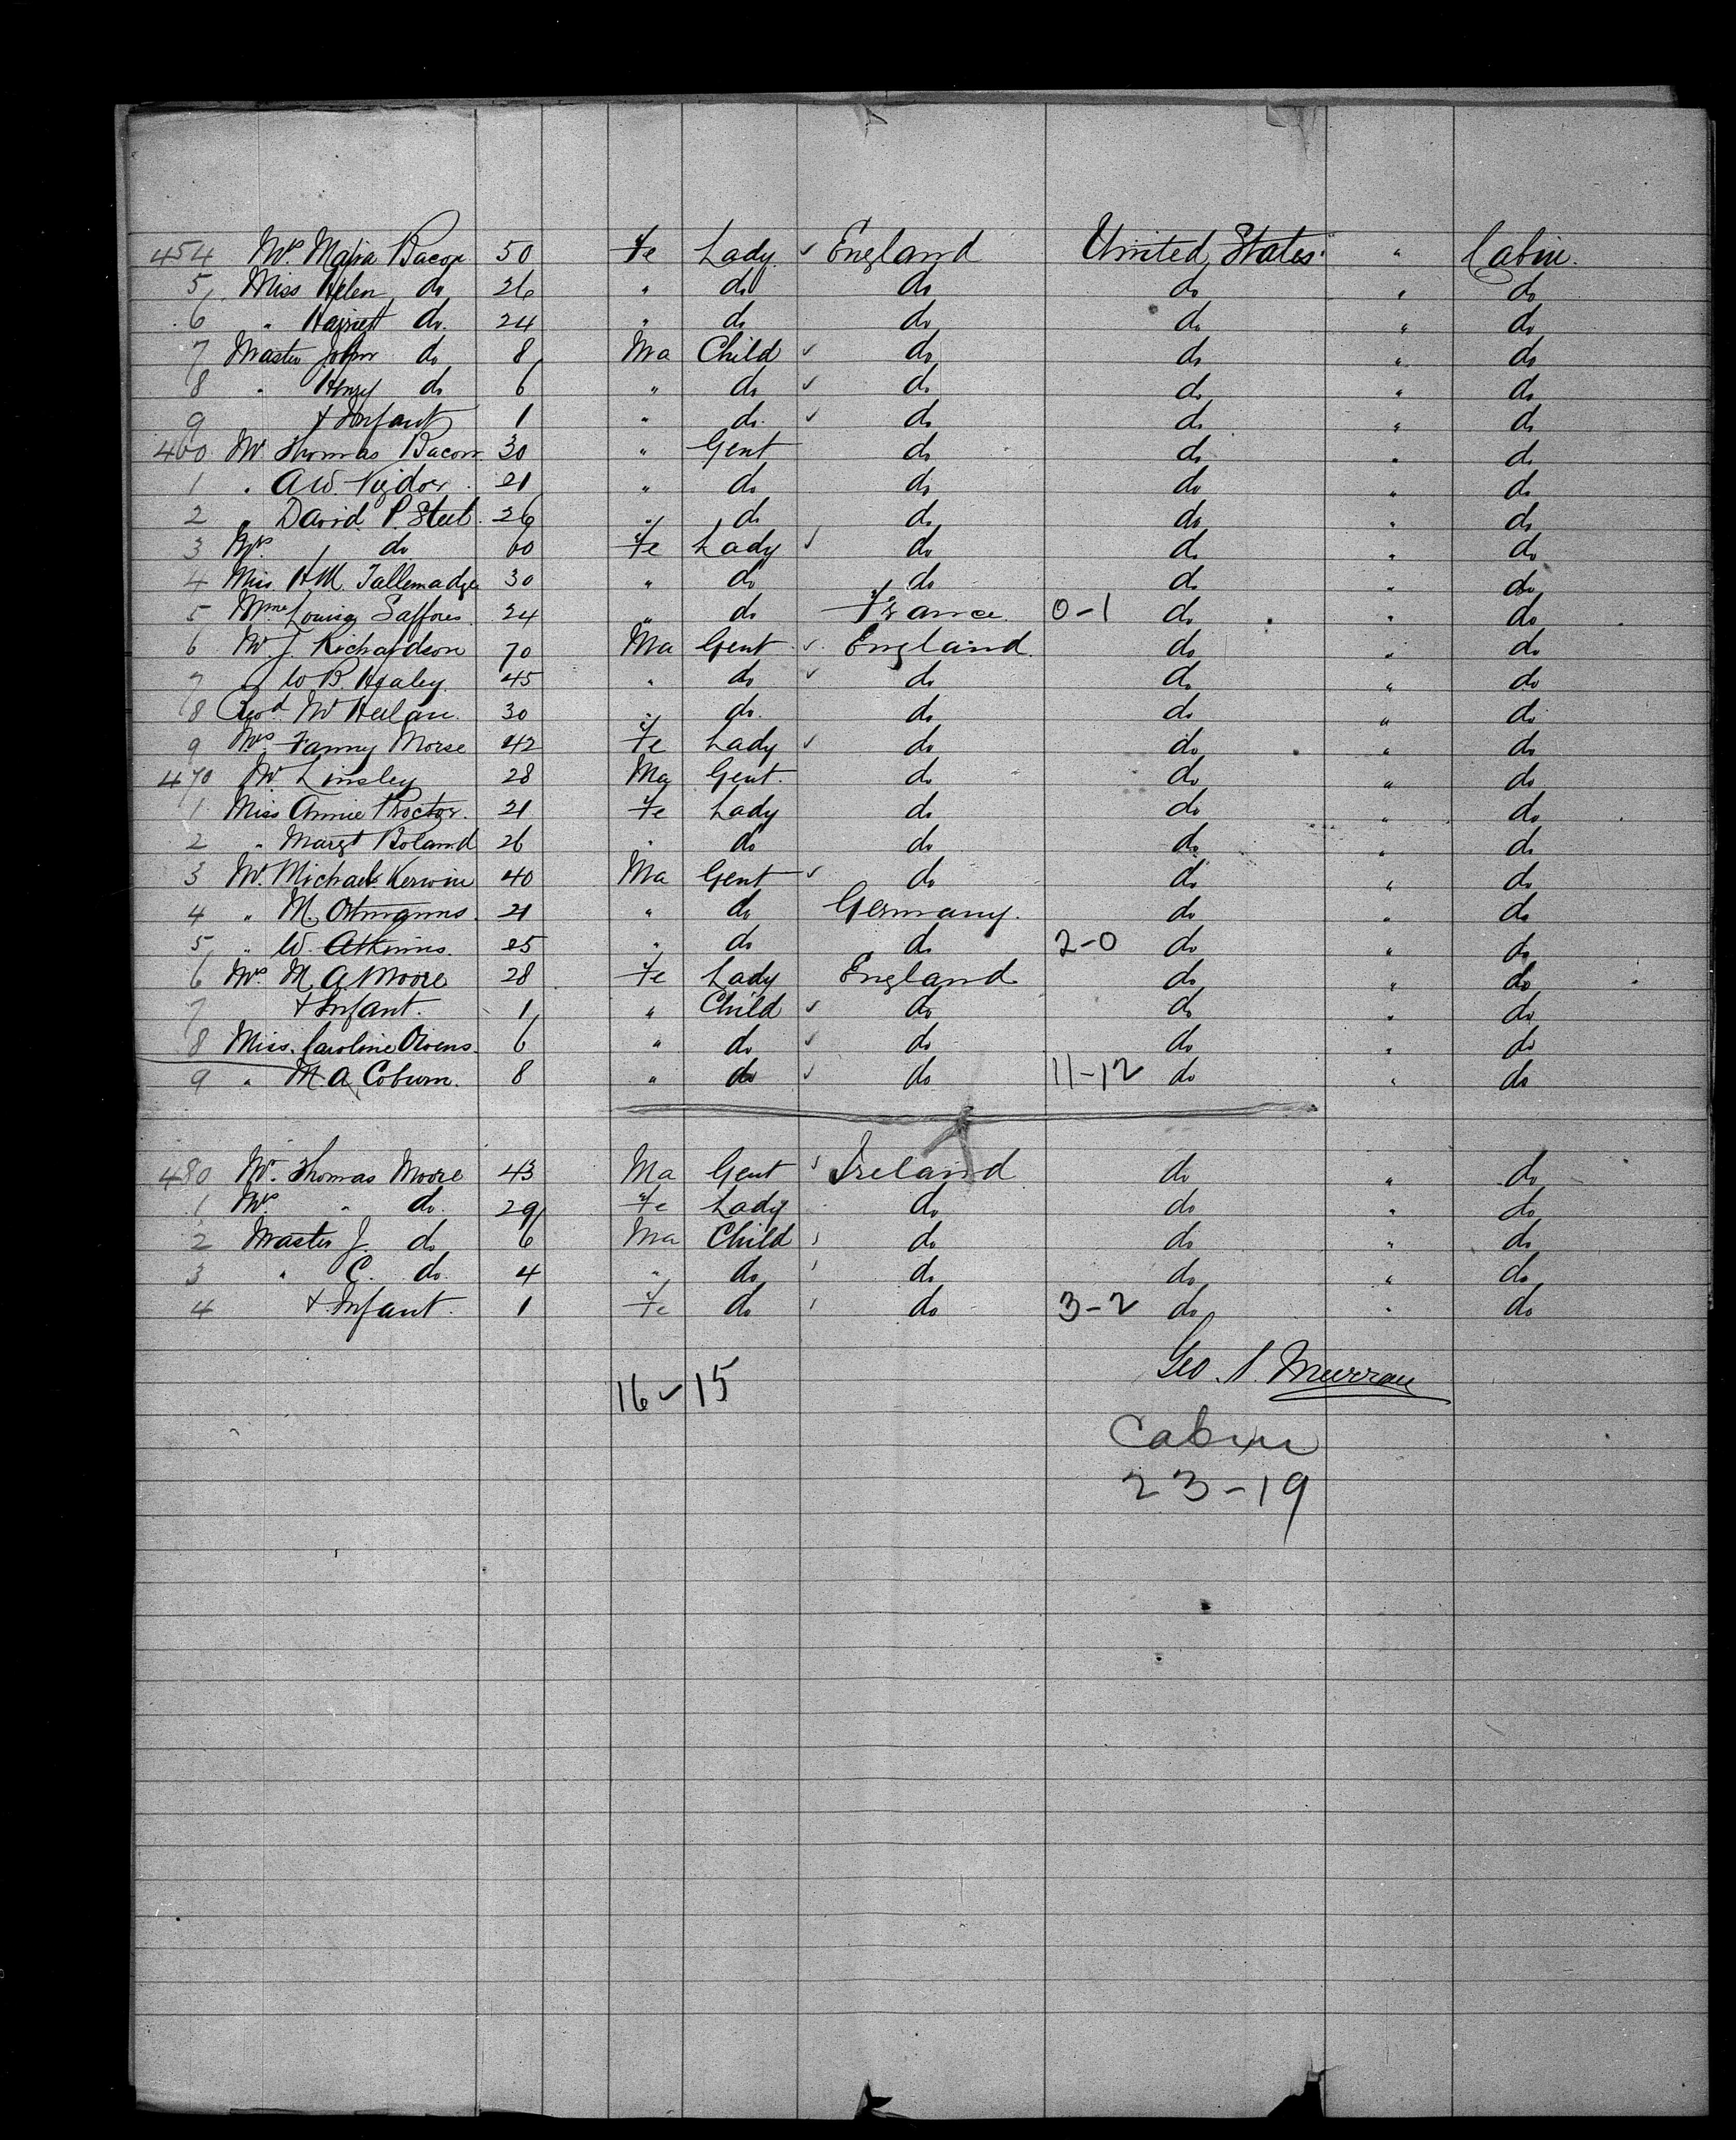 454 Mrs Maria Bacon 50 Fe Lady ✓ England United States " Cabin.
5 Miss Helen do 26 " do do do " do
6 " Harriett do. 24 " do do do " do
7 Master John do 8 Ma Child ✓ do do " do
8 " Henry do 6 " do ✓ do do " do
9 + Infant 1 " do. ✓ do do " do
460 Mr Thomas Bacon 30 " Gent do do " do
1 " A W. 21 " do do do " do
2 " David P. Steel. 26 " do do do " do
3 Mrs " do 60 Fe Lady ✓ do do " do
4 Miss H M Tallemadge 30 " do do do " do
5 Mme Louisa 24 " do France. 0-1 do " do
6 Mr J. Richardson 70 Ma Gent ✓ England. do " do
7 " W B. Healey. 45 " do ✓ do do " do
8 Revd Mr 30 " do. do do " do
9 Mrs Fanny Morse 42 Fe Lady ✓ do do " do
470 Mr Linsley 28 Ma Gent. do do " do
1 Miss Annie Proctor. 21 Fe Lady do do " do
2 " Margt Boland 26 " do do do " do
3 Mr. Michael Kerwin 40 Ma Gent ✓ do do " do
4 " M. Ortmanns. 21 " do Germany. do " do
5 " W. Atkinns. 25 " do do 2-0 do " do
6 Mrs M A Moore 28 Fe Lady England do " do
7 + Infant. 1 " Child ✓ do do " do
8 Miss. Caroline Owens. 6 " do ✓ do do " do
9 " M. A Coburn. 8 " do ✓ do 11-12 do " do
480 Mr. Thomas Moore 43 Ma Gent ✓ Ireland do " do
1 Mrs " do. 29 Fe Lady do do " do
2 Master J. do 6 Ma Child ✓ do do " do
3 " C. do. 4 " do ✓ do do " do
4 + Infant. 1 Fe do ✓ do 3-2 do " do
Geo. S. Murray
16-15
Cabin
23-19